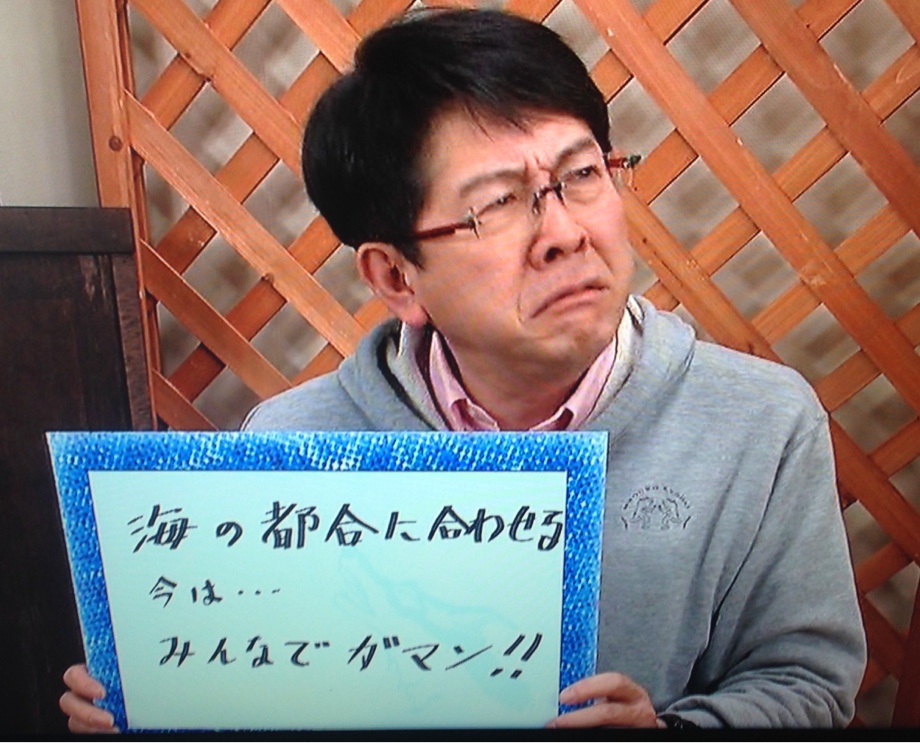 海の都合に合わせる
今は…
みんなでガマン!!